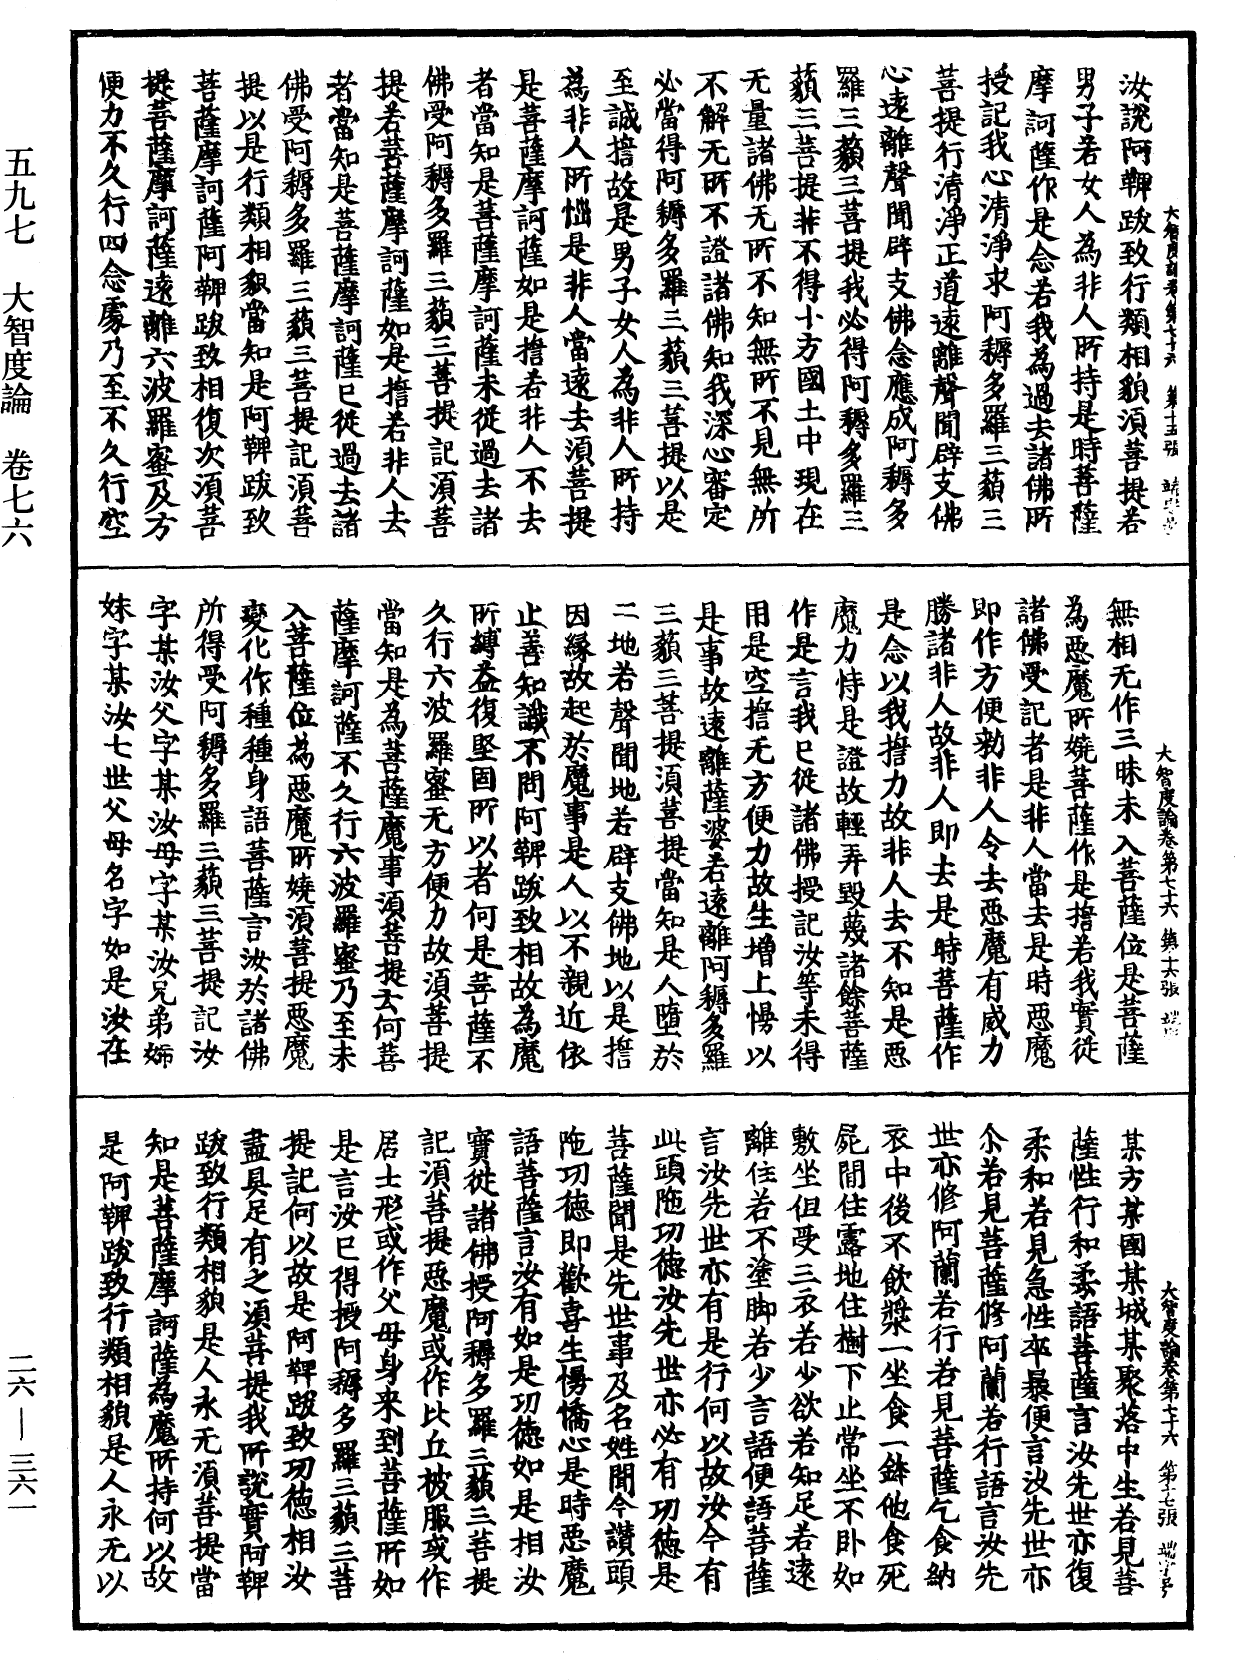 大智度論卷第七十六 第十五張
汝說阿鞞跋致行類相貌須菩提若
男子若女人為非人所持是時菩薩
摩訶薩作是念若我為過去諸佛所
授記我心清淨求阿耨多羅三藐三
菩提行清淨正道遠離聲聞辟支佛
心遠離聲聞辟支佛念應成阿耨多
羅三藐三菩提我必得阿耨多羅三
藐三菩提非不得十方國土中現在
无量諸佛无所不知無所不見無所
不解无所不證諸佛知我深心審定
必當得阿耨多羅三藐三菩提以是
至誠擔故是男子女人為非人所持
為非人所惱是非人當遠去須菩提
是菩薩摩訶薩如是擔若非人不去
者當知是菩薩摩訶薩未從過去諸
佛受阿耨多羅三藐三菩提記須菩
提若菩薩摩訶薩如是擔若非人去
者當知是菩薩摩訶薩已從過去諸
佛受阿耨多羅三藐三菩提記須菩
提以是行類相貌當知是阿鞞跋致
菩薩摩訶薩阿鞞跋致相復次須菩
提菩薩摩訶薩遠離六波羅蜜及方
便力不久行四念處乃至不久行空
大智度論卷第七十六 第十六張
無相无作三昧未入菩薩位是菩薩
為惡魔所嬈菩薩作是擔若我實從
諸佛受記者是非人當去是時惡魔
即作方便勑非人令去惡魔有威力
勝諸非人故非人即去是時菩薩作
是念以我擔力故非人去不知是惡
魔力恃是證故輕弄毀蔑諸餘菩薩
作是言我已從諸佛授記汝等未得
用是空擔无方便力故生增上慢以
是事故遠離薩婆若遠離阿耨多羅
三藐三菩提須菩提當知是人墮於
二地若聲聞地若辟支佛地以是擔
因緣故起於魔事是人以不親近依
止善知識不問阿鞞跋致相故為魔
所縛益復堅固所以者何是菩薩不
久行六波羅蜜无方便力故須菩提
當知是為菩薩魔事須菩提云何菩
薩摩訶薩不久行六波羅蜜乃至未
入菩薩位為惡魔所嬈須菩提惡魔
變化作種種身語菩薩言汝於諸佛
所得受阿耨多羅三藐三菩提記汝
字某汝父字某汝母字某汝兄弟姊
妹字某汝七世父母名字如是汝在
大智度論卷第七十六 第十七張 端字号
某方某國某城某聚落中生若見菩
薩性行和柔語菩薩言汝先世亦復
柔和若見急性卒暴便言汝先世亦
尒若見菩薩修阿蘭若行語言汝先
世亦修阿蘭若行若見菩薩乞食納
衣中後不飲漿一坐食一鉢他食死
屍間住露地住樹下止常坐不卧如
敷坐但受三衣若少欲若知足若遠
離住若不塗脚若少言語便語菩薩
言汝先世亦有是行何以故汝今有
此頭陁功德汝先世亦必有功德是
菩薩聞是先世事及名姓聞今讚頭
陁功德即歡喜生慢憍心是時惡魔
語菩薩言汝有如是功德如是相汝
實從諸佛授阿耨多羅三藐三菩提
記須菩提惡魔或作比丘被服或作
居士形或作父母身来到菩薩所如
是言汝已得授阿耨多羅三藐三菩
提記何以故是阿鞞跋致功德相汝
盡具足有之須菩提我所說實阿鞞
跋致行類相貌是人永无須菩提當
知是菩薩摩訶薩為魔所持何以故
是阿鞞跋致行類相貌是人永无以
五九七 大智度論 卷七六
二六—三六一